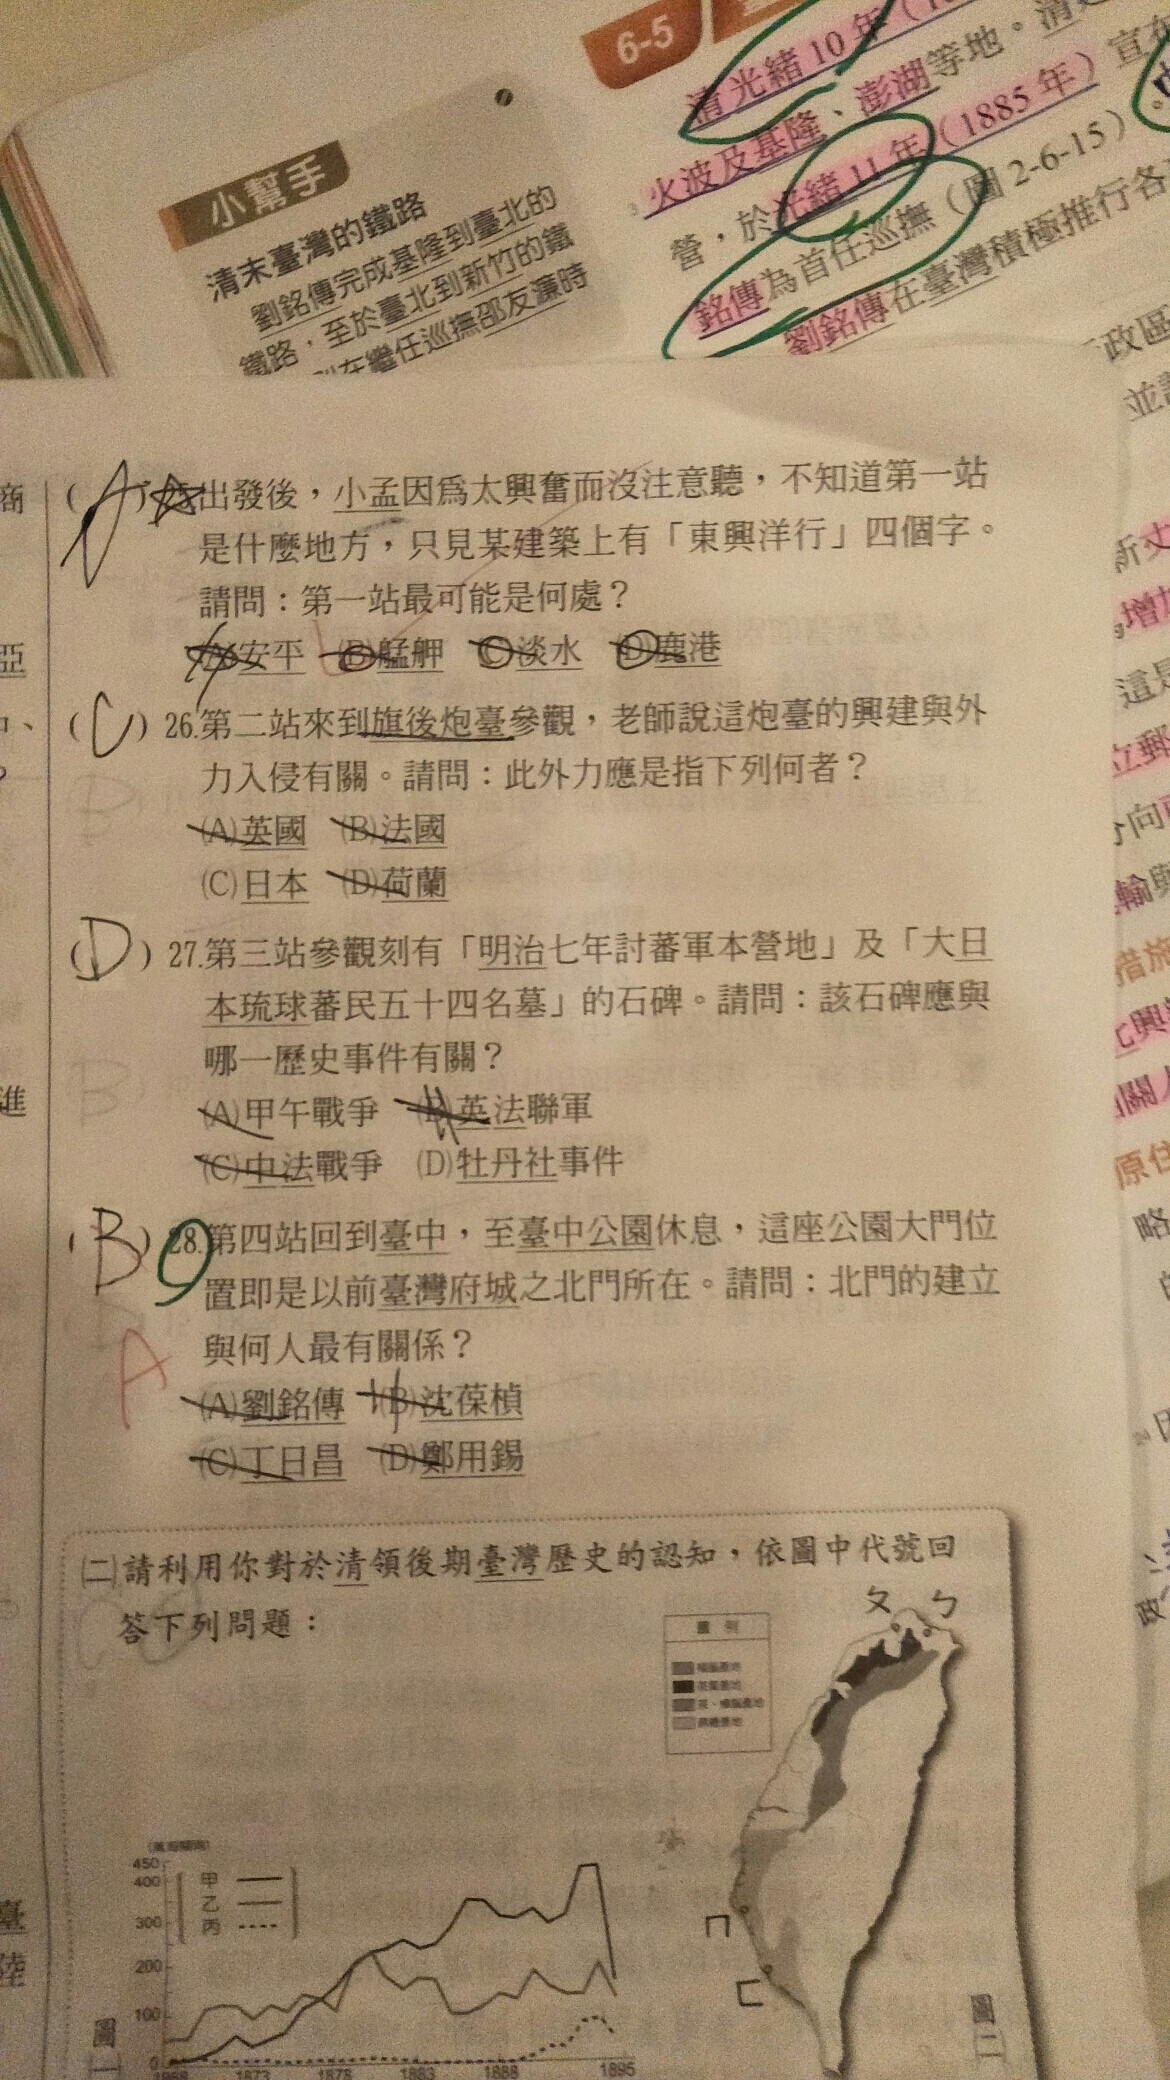 6-5
清光緒10年(
火波及基隆、澎湖等地。清
營,於光緒11年(1885年)宣布
銘傳為首任巡撫(圖2-6-15)。
劉銘傳在臺灣積極推行各
小幫手
清末臺灣的鐵路
劉銘傳完成基隆到臺北的
鐵路,至於臺北到新竹的鐵
在繼任巡撫邵友濂時
政區
並
新
增加
這是
立郵
向
輸與
措施
原住
略
商
亞
進
臺
陸
(A)25.出發後,小孟因為太興奮而沒注意聽,不知道第一站
是什麼地方,只見某建築上有「東興洋行」四個字。
請問:第一站最可能是何處?
(A)安平 (B)艋舺 (C)淡水 (D)鹿港
(C)26.第二站來到旗後炮臺參觀,老師說這炮臺的興建與外
力入侵有關。請問:此外力應是指下列何者?
(A)英國 (B)法國
(C)日本 (D)荷蘭
(D)27.第三站參觀刻有「明治七年討蕃軍本營地」及「大日
本琉球蕃民五十四名墓」的石碑。請問:該石碑應與
哪一歷史事件有關?
(A)甲午戰爭 (B)英法聯軍
(C)中法戰爭 (D)牡丹社事件
(B)28.第四站回到臺中,至臺中公園休息,這座公園大門位
置即是以前臺灣府城之北門所在。請問:北門的建立
與何人最有關係?
A
(A)劉銘傳 (B)沈葆楨
(C)丁日昌 (D)鄭用錫
(二)請利用你對於清領後期臺灣歷史的認知,依圖中代號回
答下列問題:
圖例
ㄆ ㄅ
ㄇ
ㄈ
圖二
450
400
300
200
100
0
甲
乙
丙
1868 1873 1878 1883 1888 1895
圖一